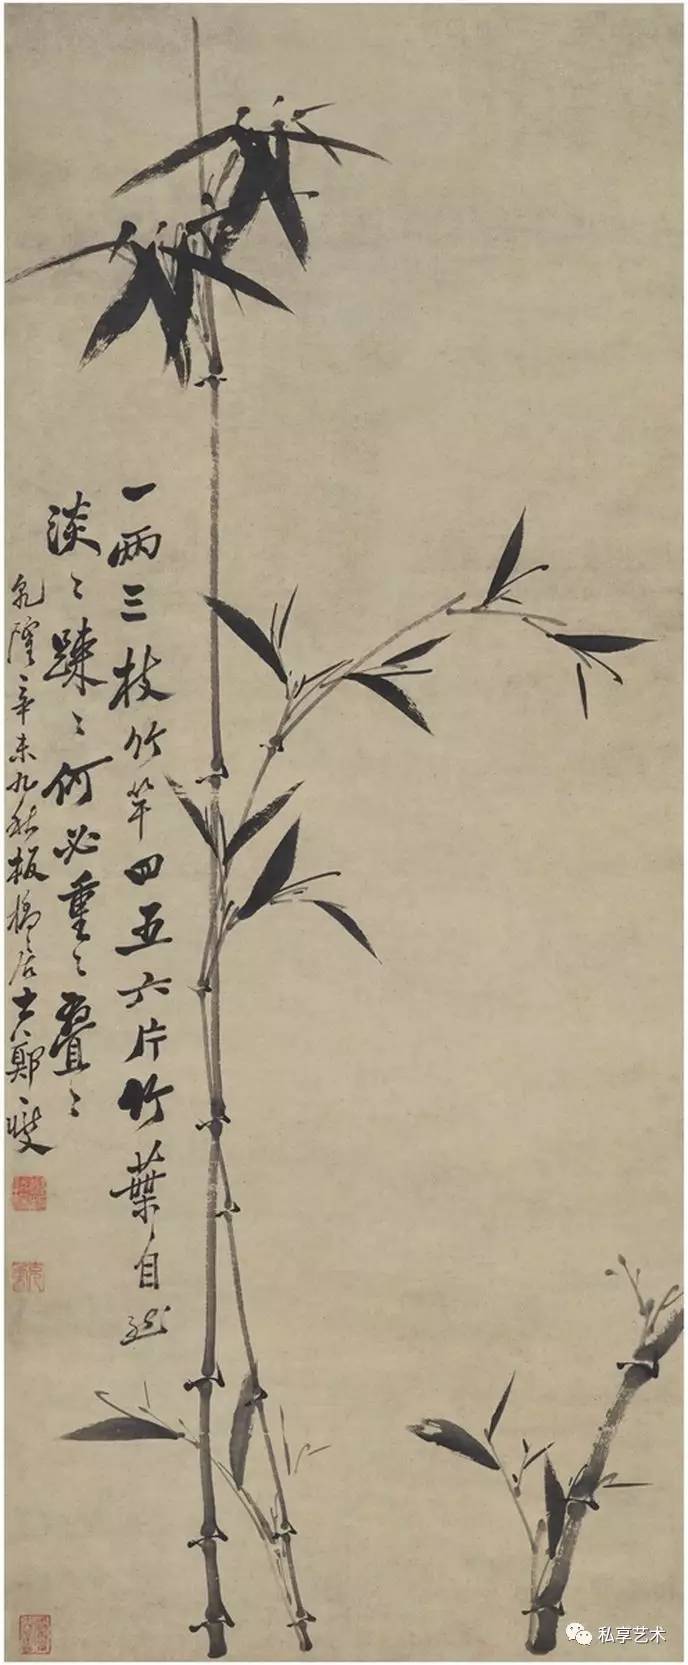 一两三枝竹竿四五六片竹葉自然
淡〻踈〻何必重〻叠〻
乾隆辛未九秋板橋居士鄭燮
私享艺术